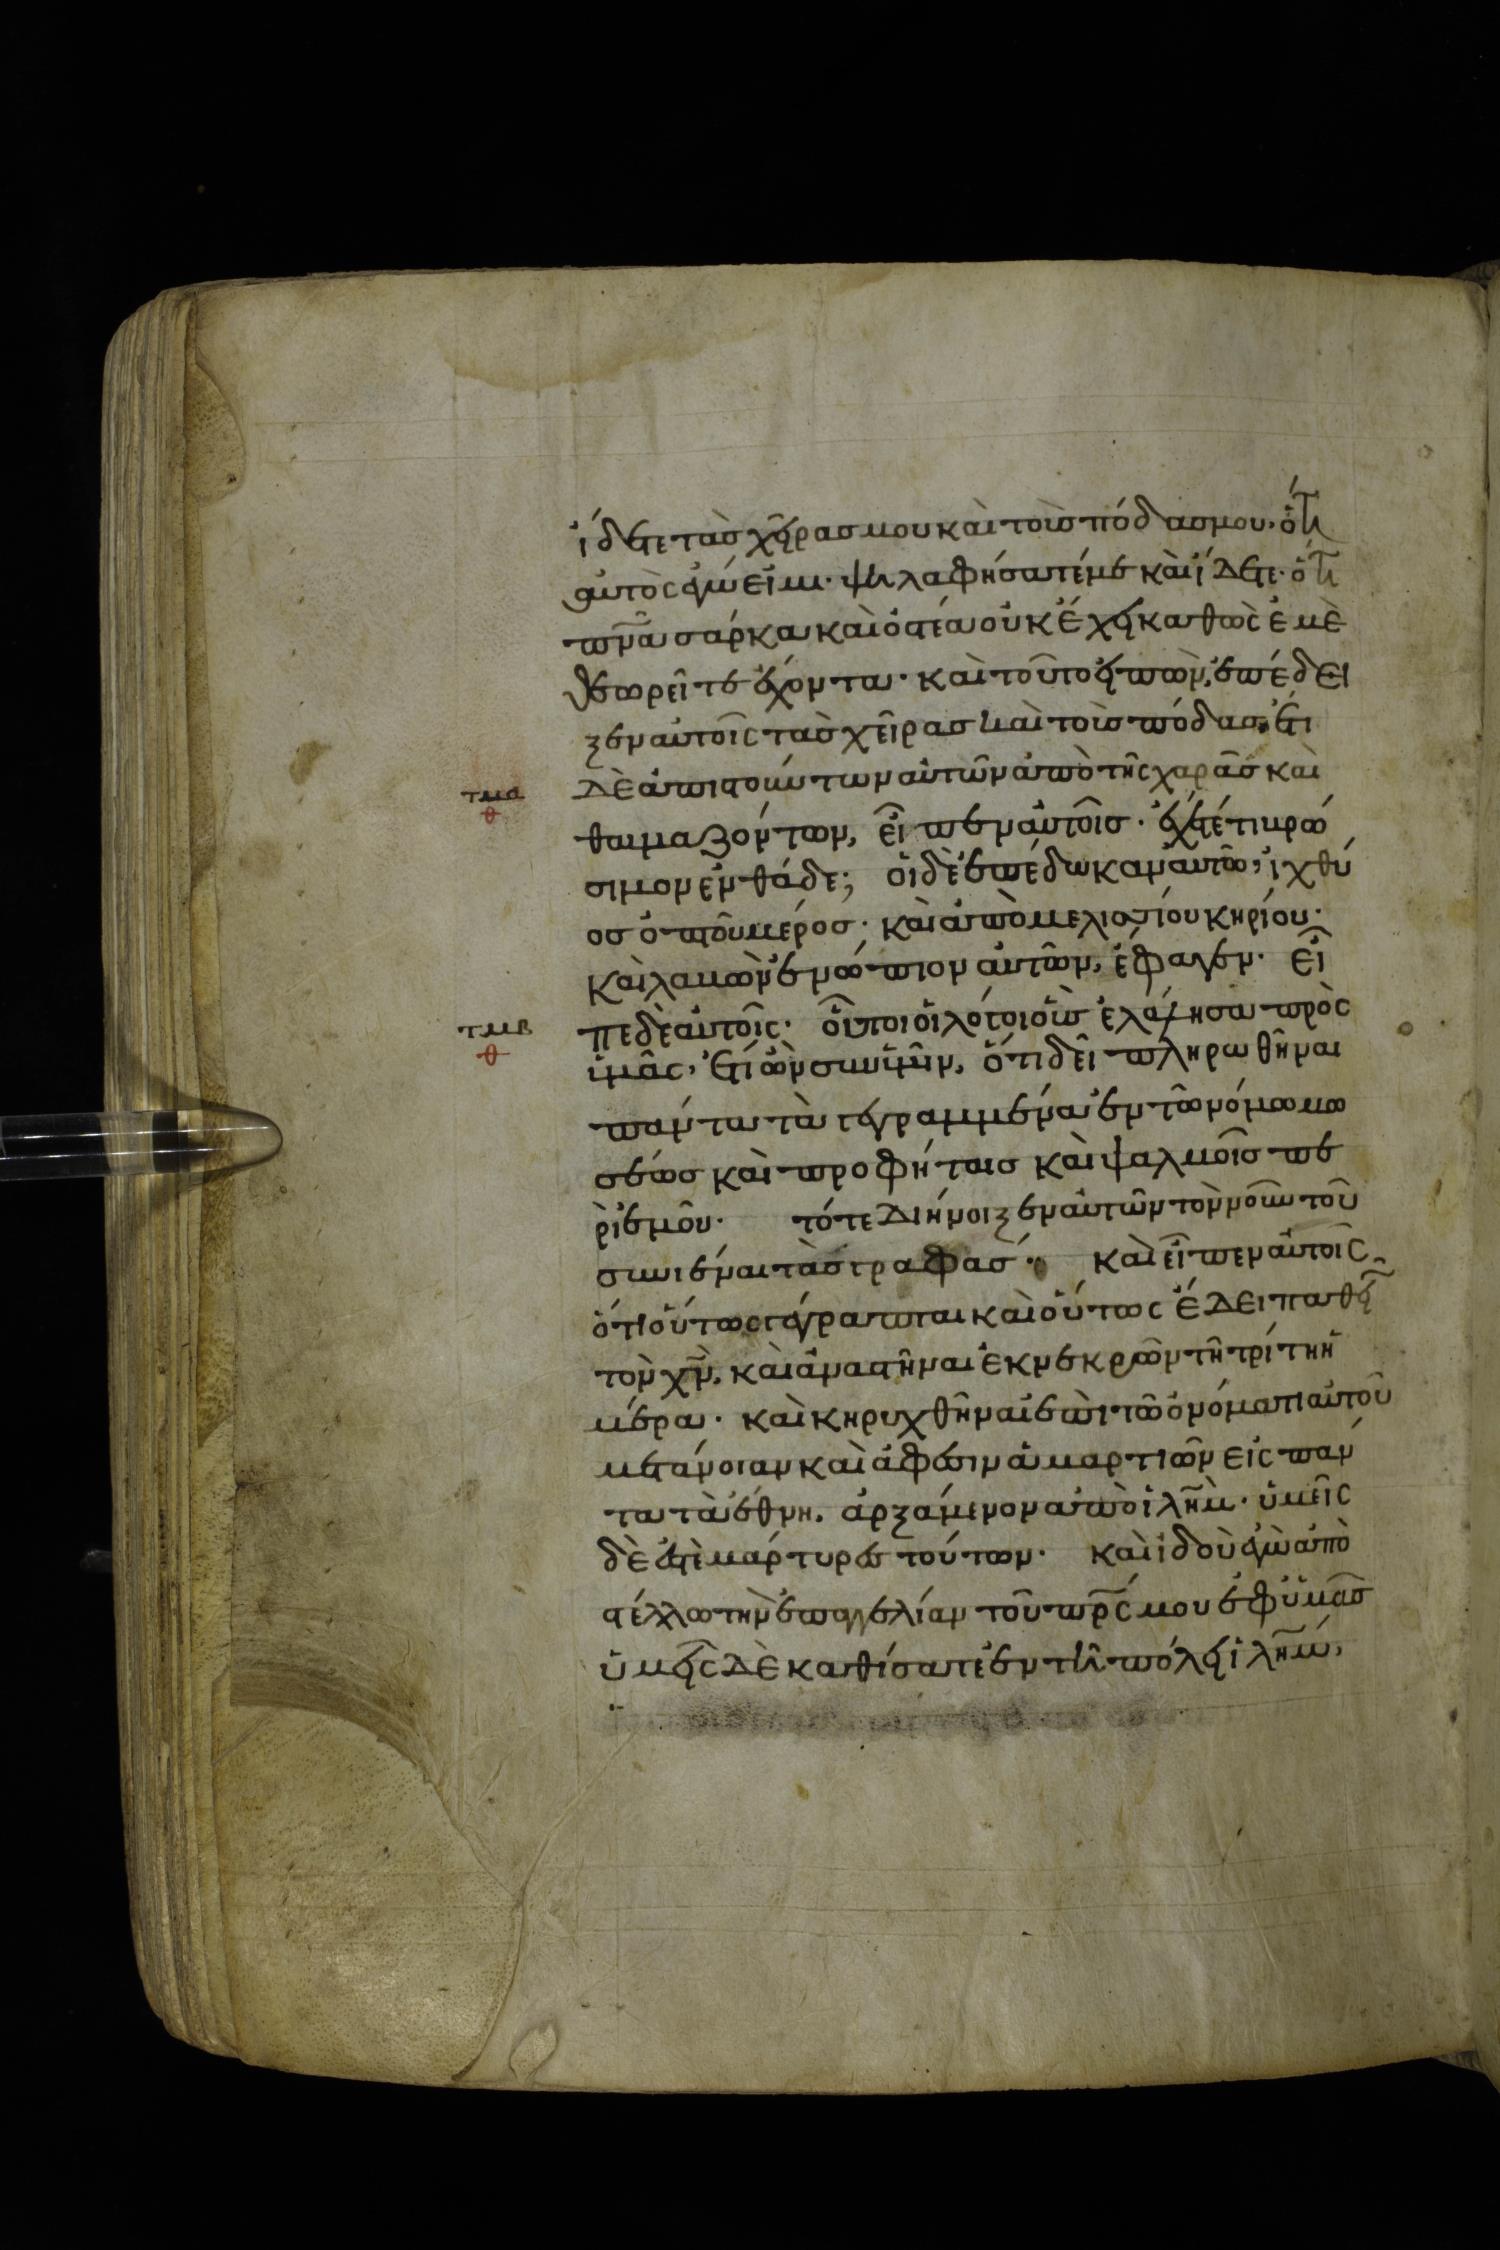 ἴδετε τὰς χεῖρας μου καὶ τοὺς πόδας μου· ὅτι
αὐτὸς ἐγώ εἰμι· ψηλαφήσατέ με καὶ ἴδετε· ὅτι
πνᾶ σάρκα καὶ ὀστέα οὐκ ἔχει καθὼς ἐμὲ
θεωρεῖτε ἔχοντα· καὶ τοῦτο εἰπὼν, ἐπέδει
ξεν αὐτοῖς τὰς χεῖρας καὶ τοὺς πόδας· ἔτι
τμα δὲ ἀπιστούντων αὐτῶν ἀπὸ τῆς χαρᾶς καὶ
θ
θαυμαζόντων, εἶπεν αὐτοῖς· ἔχετέ τι βρώ
σιμον ἐνθάδε; οἱ δὲ ἐπέδωκαν αὐτῶ, ἰχθύ
ος ὀπτοῦ μέρος· καὶ ἀπὸ μελισσίου κηρίου·
καὶ λαβὼν ἐνώπιον αὐτῶν, ἔφαγεν· εἶ
τμβ πε δὲ αὐτοῖς· οὗτοι οἱ λόγοι οὓς ἐλάλησα πρὸς
θ
ὑμᾶς, ἔτι ὢν σὺν ὑμῖν, ὅτι δεῖ πληρωθῆναι
πάντα τὰ γεγραμμένα ἐν τῶ νόμω μω
σέως καὶ προφήταις καὶ ψαλμοῖς πε
ρὶ ἐμοῦ· τότε διήνοιξεν αὐτῶν τὸν νοῦν τοῦ
συνιέναι τὰς γραφάς· καὶ εἶπεν αὐτοῖς
ὅτι οὕτως γέγραπται καὶ οὕτως ἔδει παθεῖν
τὸν χν̄, καὶ ἀναστῆναι ἐκ νεκρῶν τῆ τρίτη ἡ
μέρα· καὶ κηρυχθῆναι ἐπὶ τῶ ὀνόματι αὐτοῦ
μετάνοιαν καὶ ἄφεσιν ἁμαρτιῶν εἰς πάν
τα τὰ ἔθνη. ἀρξάμενον ἀπὸ ἱλῆμ· ὑμεῖς
δὲ ἐστὲ μάρτυρες τούτων· καὶ ἰδοὺ ἐγὼ ἀπο
στέλλω τὴν ἐπαγγελίαν τοῦ πρ̄ς μου ἐφ ὑμᾶς
ὑμεῖς δὲ καθίσατε ἐν τῆ πόλει ἱλῆμ,